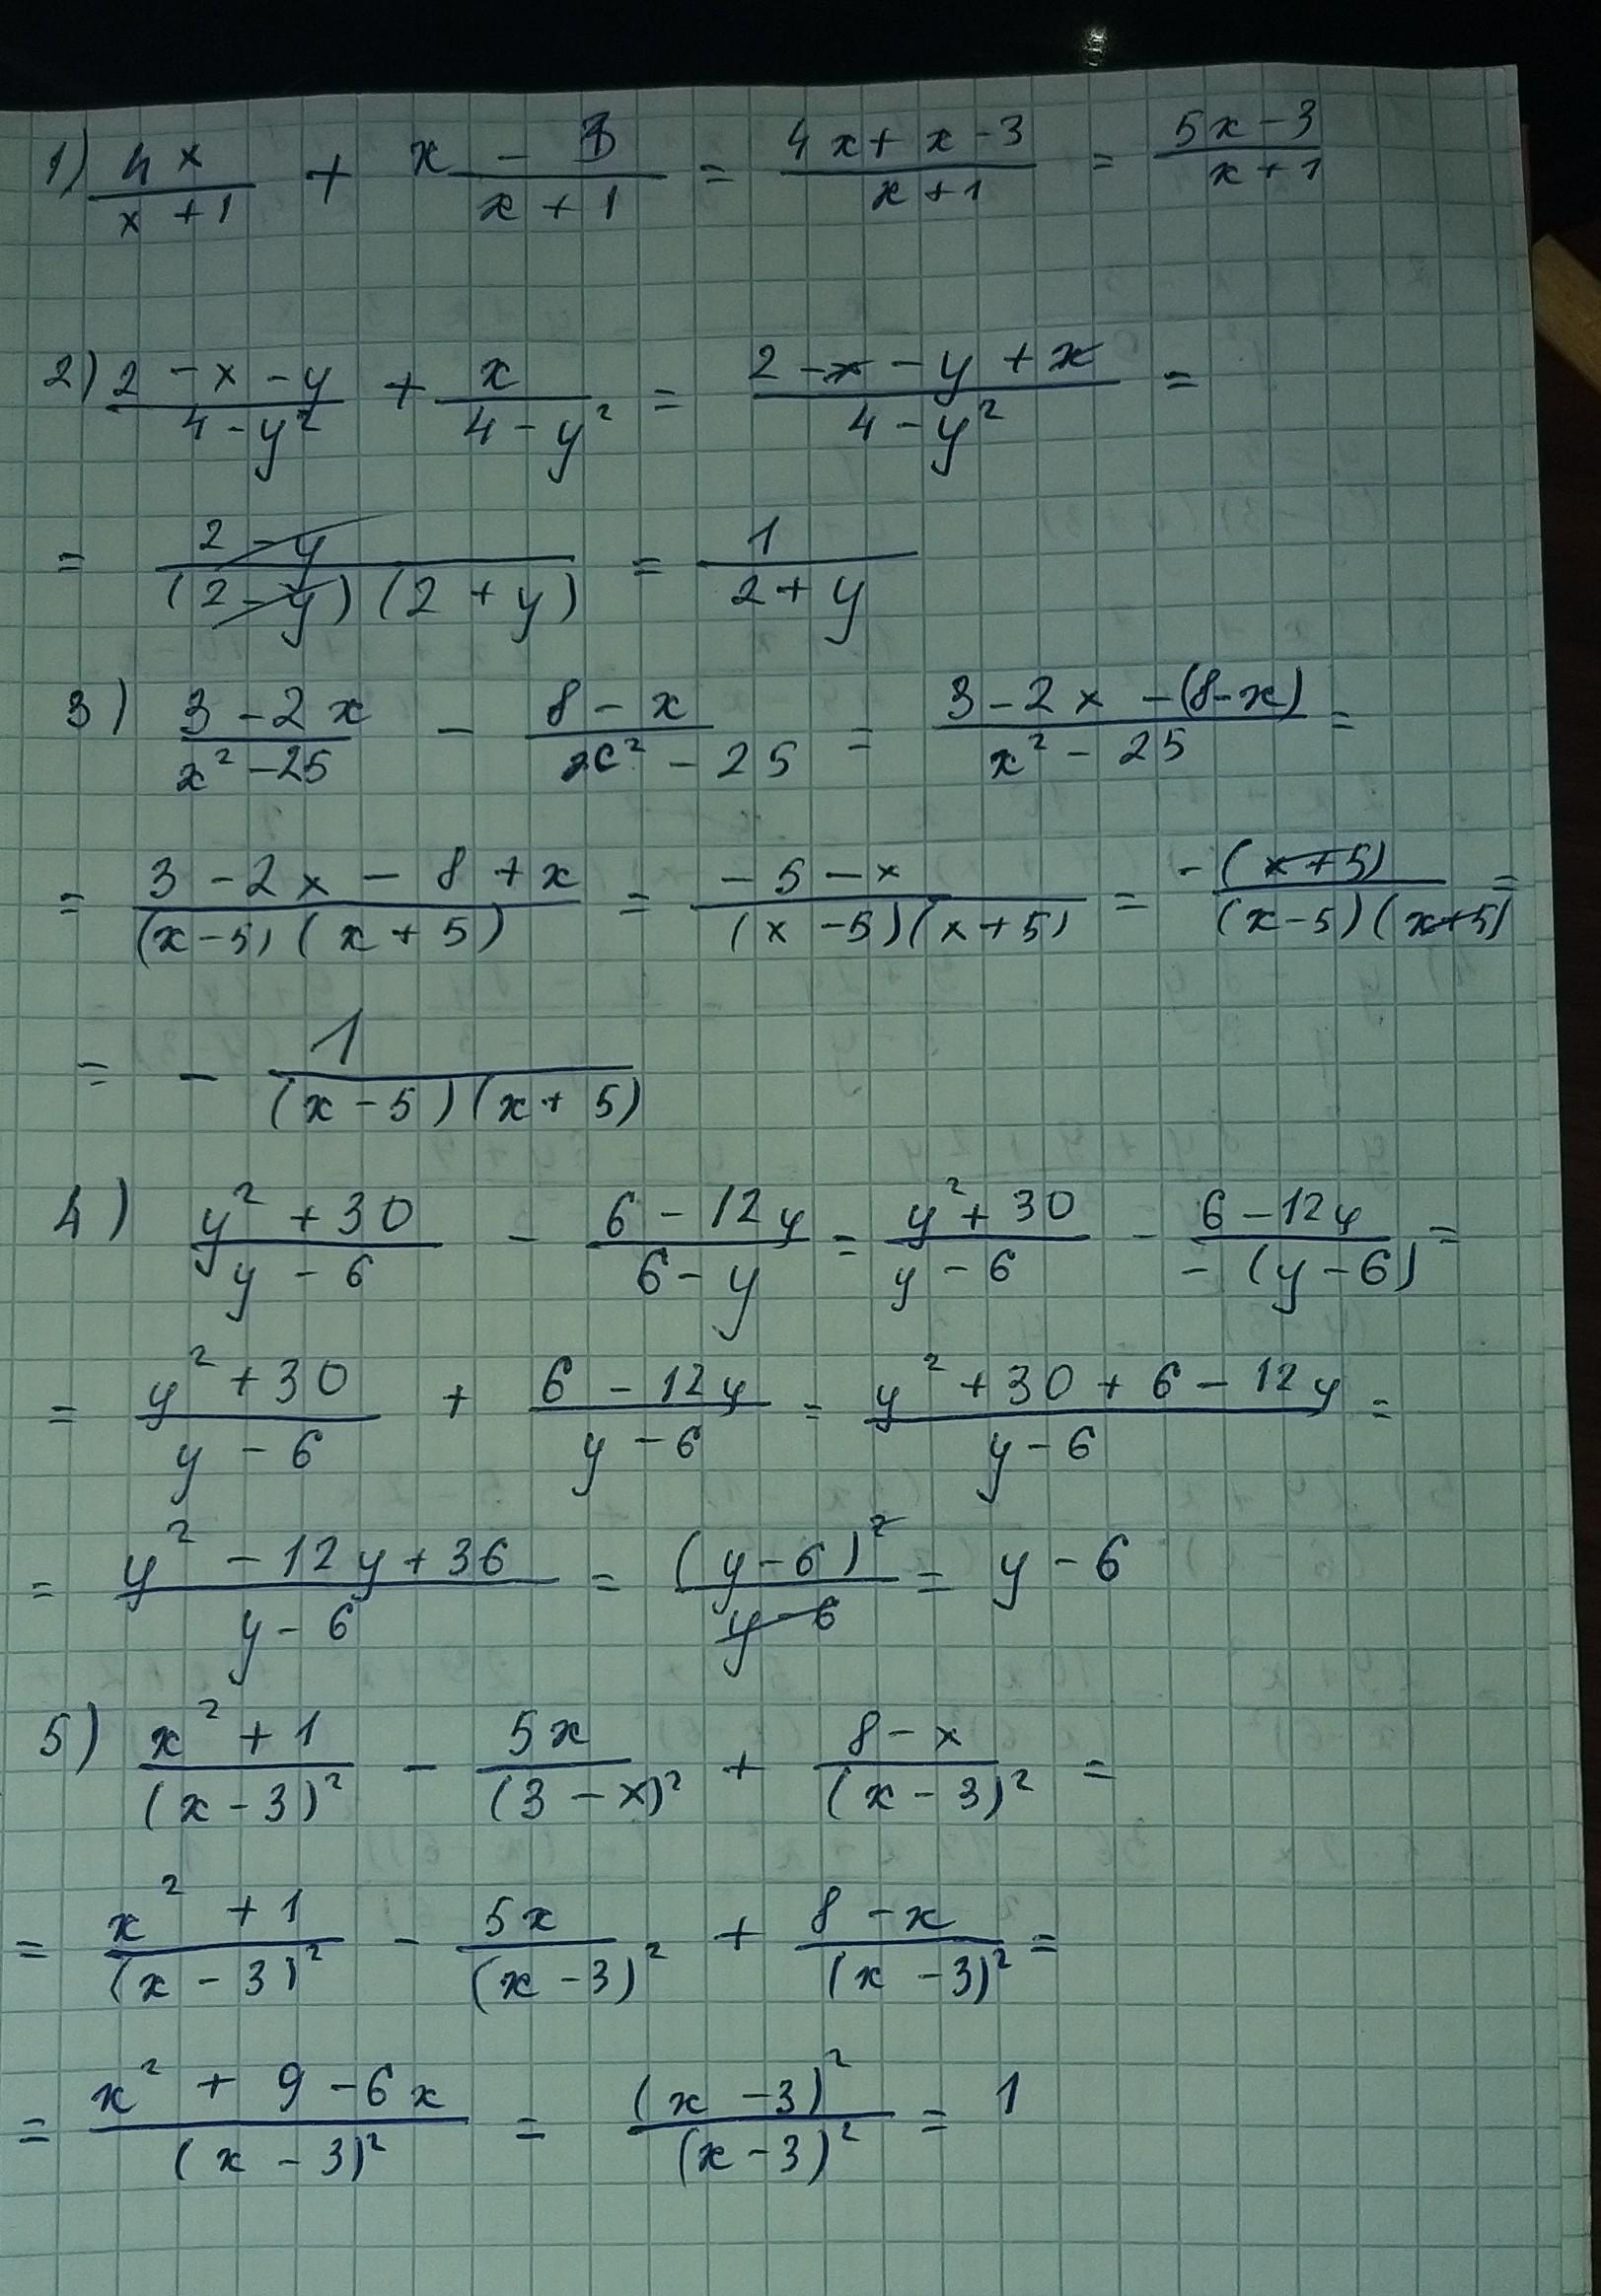 1) 4x/(x+1) + (x-3)/(x+1) = (4x+x-3)/(x+1) = (5x-3)/(x+1)
2) (2-x-y)/(4-y²) + x/(4-y²) = (2-x-y+x)/(4-y²) =
= (2-y)/((2-y)(2+y)) = 1/(2+y)
3) (3-2x)/(x²-25) - (8-x)/(x²-25) = (3-2x-(8-x))/(x²-25) =
= (3-2x-8+x)/((x-5)(x+5)) = (-5-x)/((x-5)(x+5)) = -(x+5)/((x-5)(x+5)) =
= - 1/((x-5)(x+5))
4) (y²+30)/(y-6) - (6-12y)/(6-y) = (y²+30)/(y-6) - (6-12y)/(-(y-6)) =
= (y²+30)/(y-6) + (6-12y)/(y-6) = (y²+30+6-12y)/(y-6) =
= (y²-12y+36)/(y-6) = (y-6)²/(y-6) = y-6
5) (x²+1)/(x-3)² - 5x/(3-x)² + (8-x)/(x-3)² =
= (x²+1)/(x-3)² - 5x/(x-3)² + (8-x)/(x-3)² =
= (x²+9-6x)/(x-3)² = (x-3)²/(x-3)² = 1